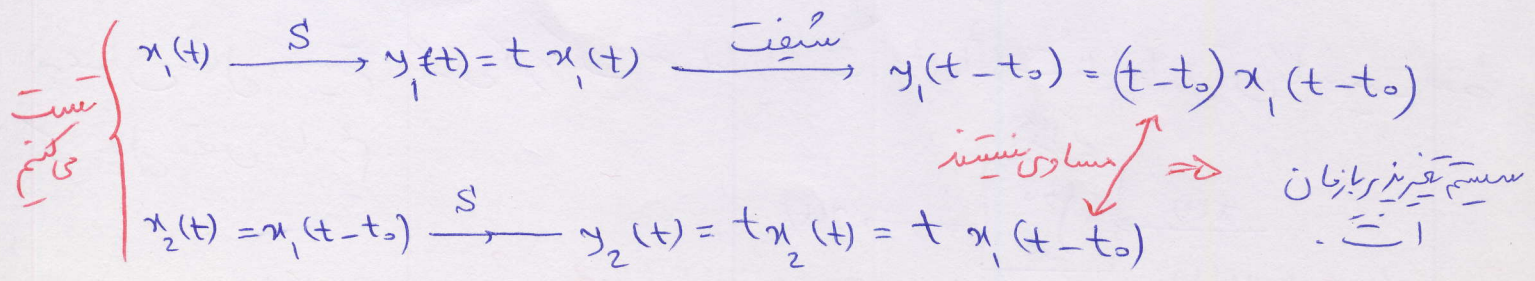 x₁(t) —S→ y₁(t) = t x₁(t) —شیفت→ y₁(t-t₀) = (t-t₀) x₁(t-t₀)
تست
می‌کنیم
مساوی نیستند ⇒ سیستم تغییرپذیر با زمان
است.
x₂(t) = x₁(t-t₀) —S→ y₂(t) = t x₂(t) = t x₁(t-t₀)